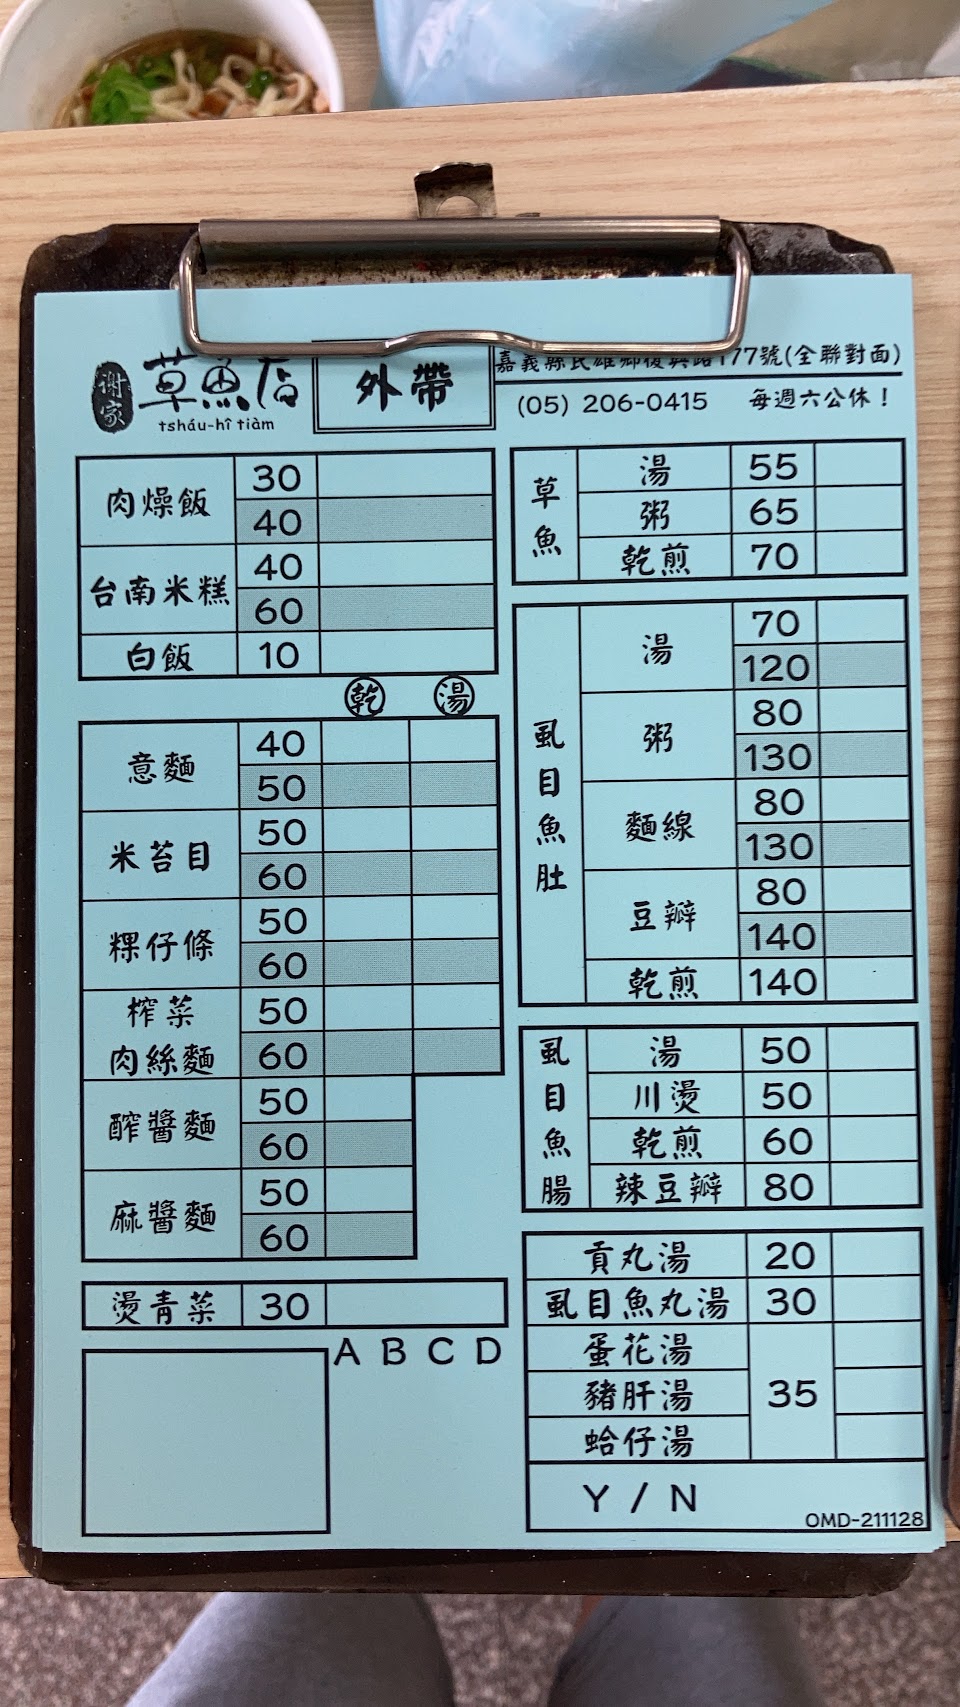 谢家
草魚店
tsháu-hî tiàm
外帶
嘉義縣民雄鄉復興路177號(全聯對面)
(05) 206-0415 每週六公休！
肉燥飯 30
40
台南米糕 40
60
白飯 10
乾 湯
意麵 40
50
米苔目 50
60
粿仔條 50
60
榨菜 50
肉絲麵 60
醡醬麵 50
60
麻醬麵 50
60
燙青菜 30
A B C D
草魚
湯 55
粥 65
乾煎 70
虱目魚肚
湯 70
120
粥 80
130
麵線 80
130
豆瓣 80
140
乾煎 140
虱目魚腸
湯 50
川燙 50
乾煎 60
辣豆瓣 80
貢丸湯 20
虱目魚丸湯 30
蛋花湯
豬肝湯 35
蛤仔湯
Y / N
OMD-211128